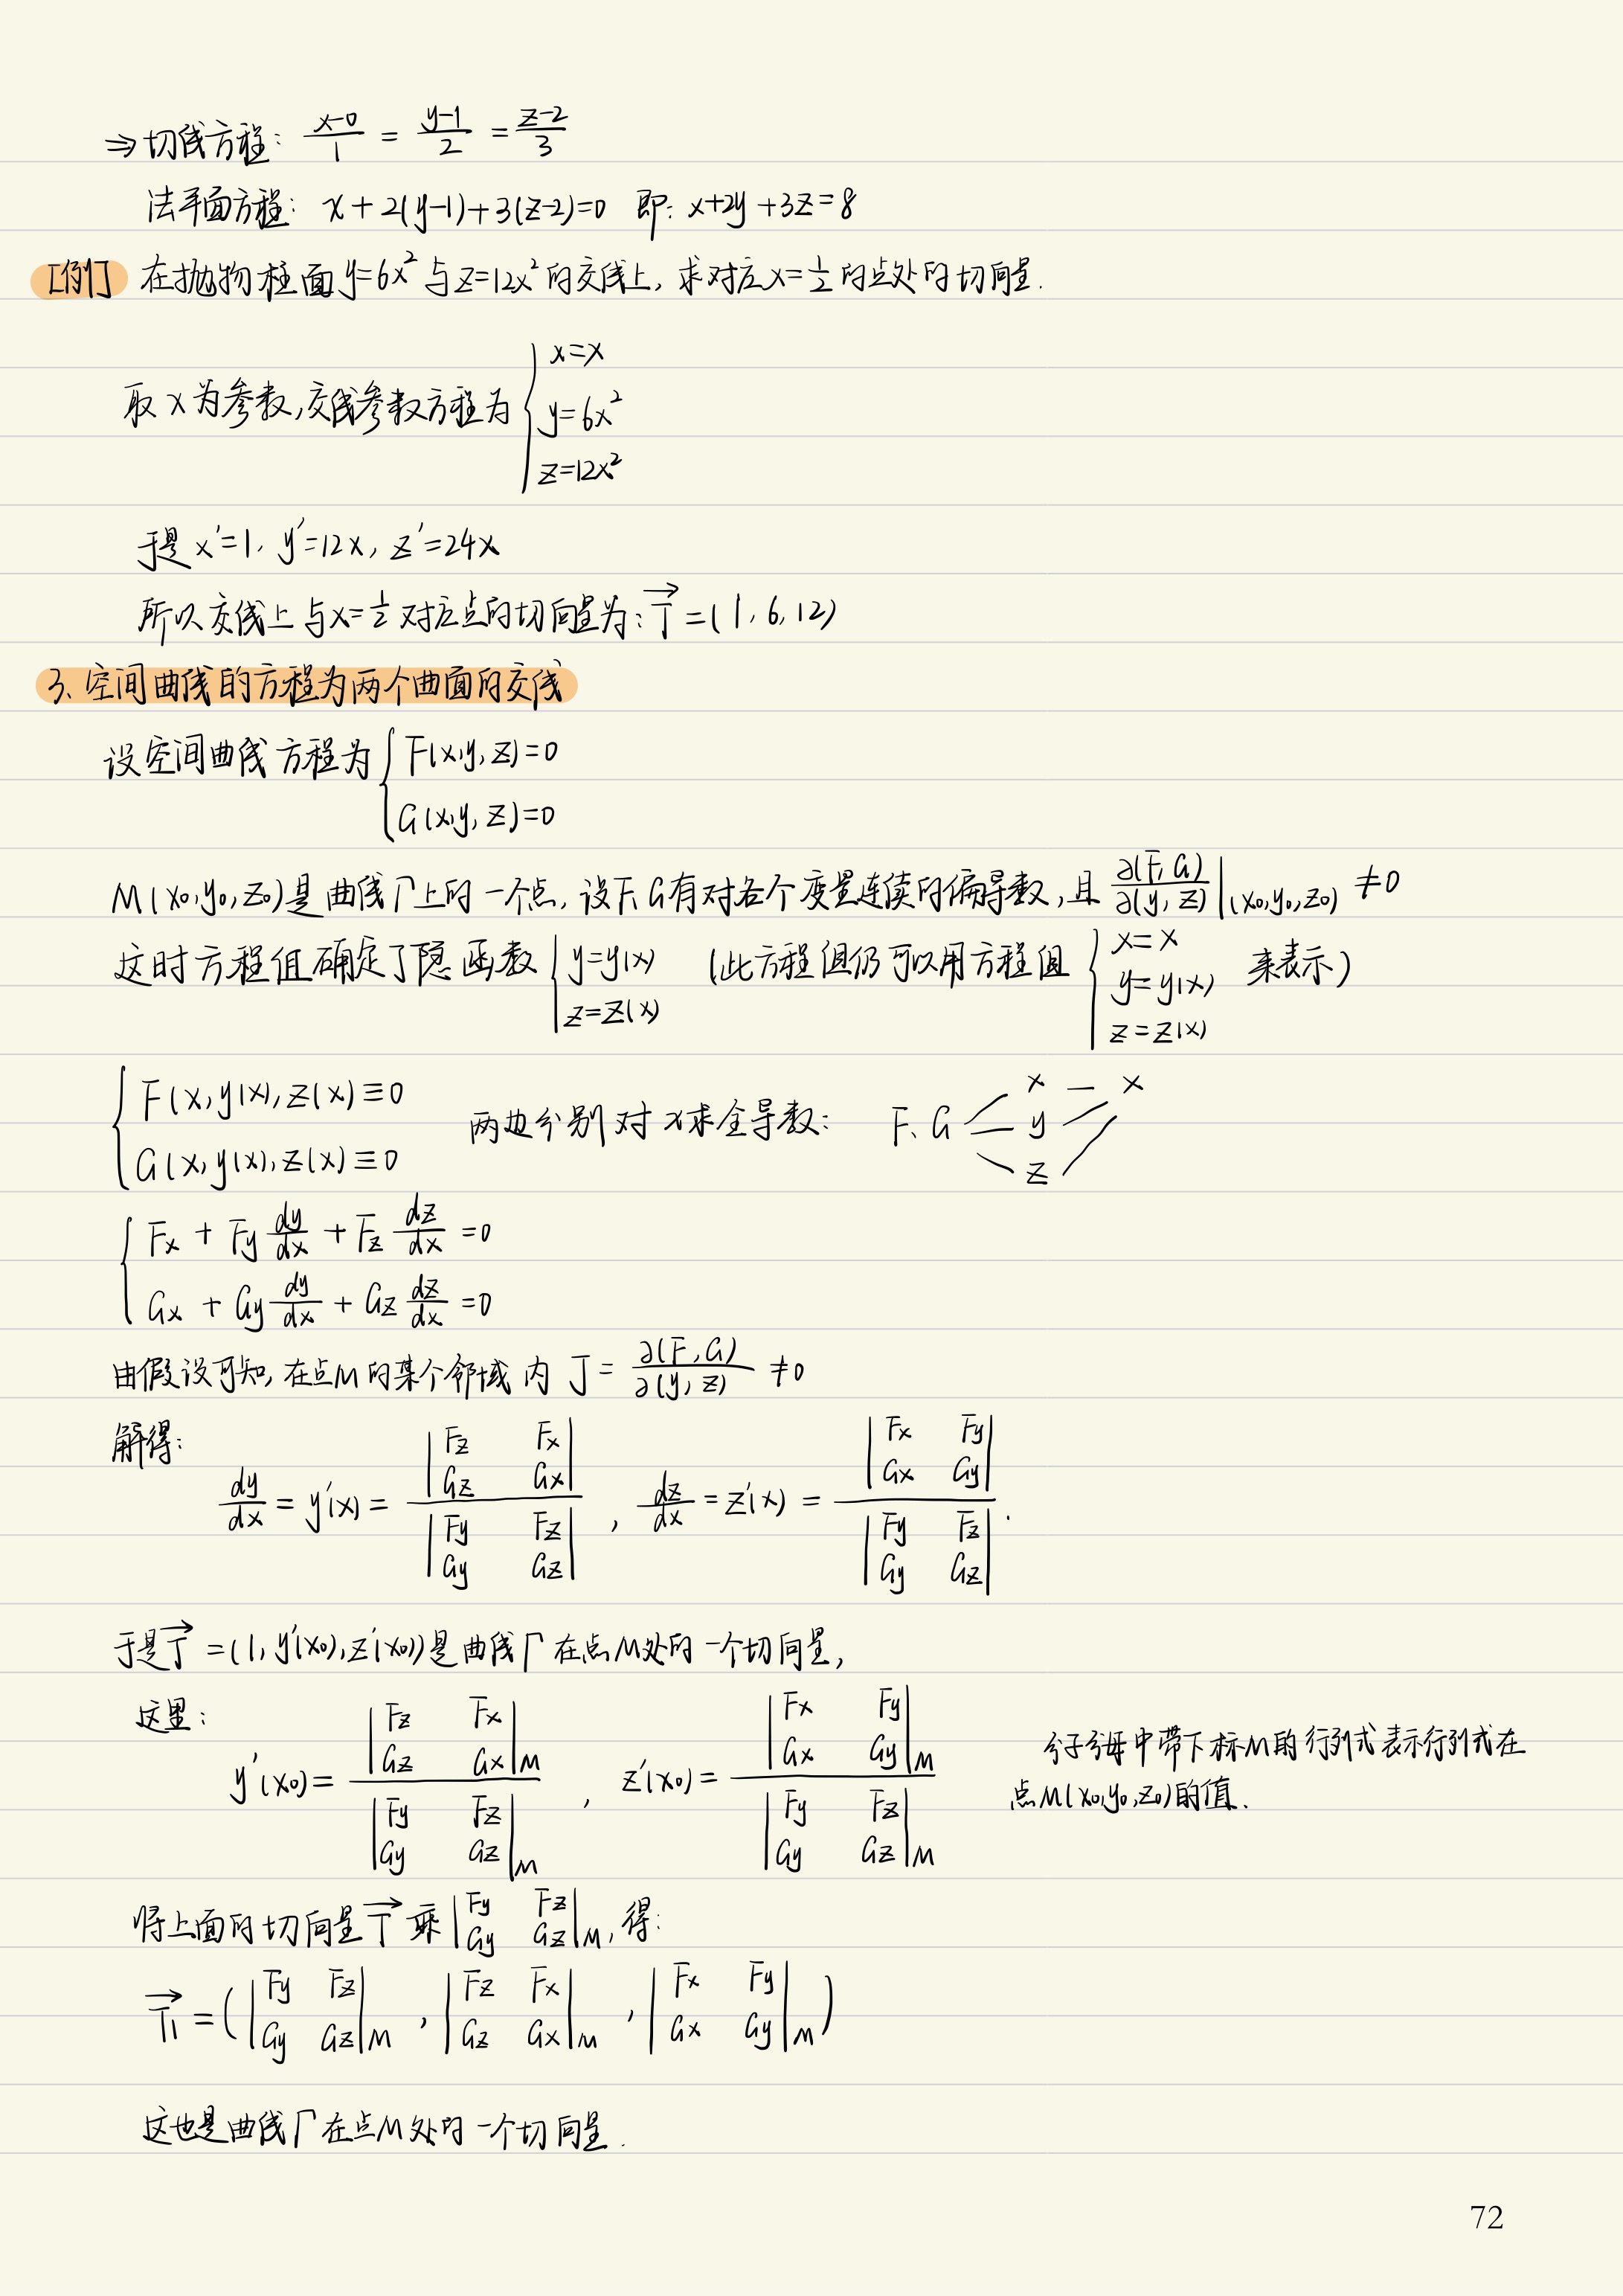 ⇒切线方程: (x-0)/1 = (y-1)/2 = (z-2)/3
法平面方程: x+2(y-1)+3(z-2)=0 即: x+2y+3z=8
[例] 在抛物柱面y=6x²与z=12x²的交线上, 求对应x=1/2的点处的切向量.
取x为参数,交线参数方程为 { x=x
y=6x²
z=12x²
于是x'=1, y'=12x, z'=24x
所以交线上与x=1/2对应点的切向量为: T⃗=(1,6,12)
3、空间曲线的方程为两个曲面的交线
设空间曲线方程为 { F(x,y,z)=0
G(x,y,z)=0
M(x₀,y₀,z₀)是曲线Γ上的一个点, 设F、G有对各个变量连续的偏导数,且 ∂(F,G)/∂(y,z)|(x₀,y₀,z₀) ≠0
这时方程组确定了隐函数 { y=y(x) z=z(x) (此方程组仍可以用方程组 { x=x y=y(x) z=z(x) 来表示)
{ F(x,y(x),z(x)≡0
G(x,y(x),z(x)≡0
两边分别对x求全导数: F、G x y z x
{ Fx + Fy dy/dx + Fz dz/dx =0
Gx + Gy dy/dx + Gz dz/dx =0
由假设可知,在点M的某个邻域内 J= ∂(F,G)/∂(y,z) ≠0
解得:
dy/dx = y'(x) = |Fz Fx; Gz Gx| / |Fy Fz; Gy Gz| , dz/dx = z'(x) = |Fx Fy; Gx Gy| / |Fy Fz; Gy Gz| .
于是T⃗=(1, y'(x₀), z'(x₀))是曲线Γ在点M处的一个切向量,
这里:
y'(x₀)= |Fz Fx; Gz Gx|M / |Fy Fz; Gy Gz|M , z'(x₀)= |Fx Fy; Gx Gy|M / |Fy Fz; Gy Gz|M
分子分母中带下标M的行列式表示行列式在
点M(x₀,y₀,z₀)的值.
将上面的切向量T⃗乘 |Fy Fz; Gy Gz|M, 得:
T⃗₁=( |Fy Fz; Gy Gz|M , |Fz Fx; Gz Gx|M , |Fx Fy; Gx Gy|M )
这也是曲线Γ在点M处的一个切向量.
72